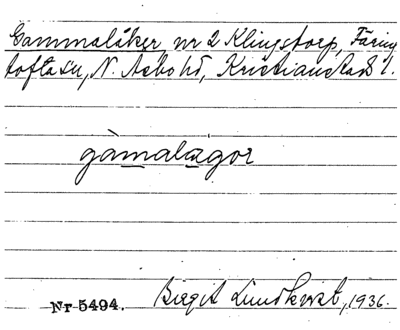 Gammalåker, nr 2 Klingstorp, Färing
tofta sn, N. Åsbo hd, Kristianstads l.
gàmalagor
Nr 5494. Birgit Lundkvist, 1936.